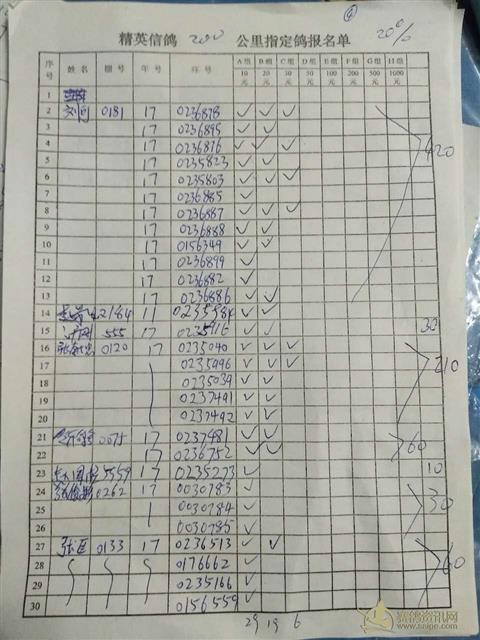 ④
20%
精英信鸽 200 公里指定鸽报名单
序号 姓名 棚号 年号 环号 A组10元 B组20元 C组30元 D组50元 E组100元 F组200元 G组500元 H组1000元
1
2 0181 17 0236878 ✓ ✓ ✓
3 17 0236895 ✓ ✓
4 17 0236876 ✓ ✓ ✓ 420
5 17 0235823 ✓ ✓
6 17 0235803 ✓ ✓ ✓
7 17 0236885 ✓
8 17 0236887 ✓ ✓ ✓
9 17 0236888 ✓ ✓
10 17 0156349 ✓ ✓
11 17 0236899 ✓
12 17 0236882 ✓
13 17 0236886 ✓ ✓
14 2184 11 0235584 ✓ ✓
15 555 17 ✓ ✓ 30
16 0120 17 0235040 ✓ ✓ ✓
17 0235996 ✓ ✓ ✓ 210
18 0235039 ✓ ✓
19 0237491 ✓ ✓
20 0237492 ✓ ✓
21 0075 17 0237481 ✓ ✓
22 17 0236752 ✓ ✓ 60
23 5559 17 0235273 ✓ 10
24 0262 17 0030783 ✓
25 0030784 ✓ 30
26 0030785 ✓
27 0133 17 0236513 ✓ ✓
28 0176662 ✓ 60
29 0235166 ✓
30 0156559 ✓
29 19 6
赛鸽资讯网
www.saige.com